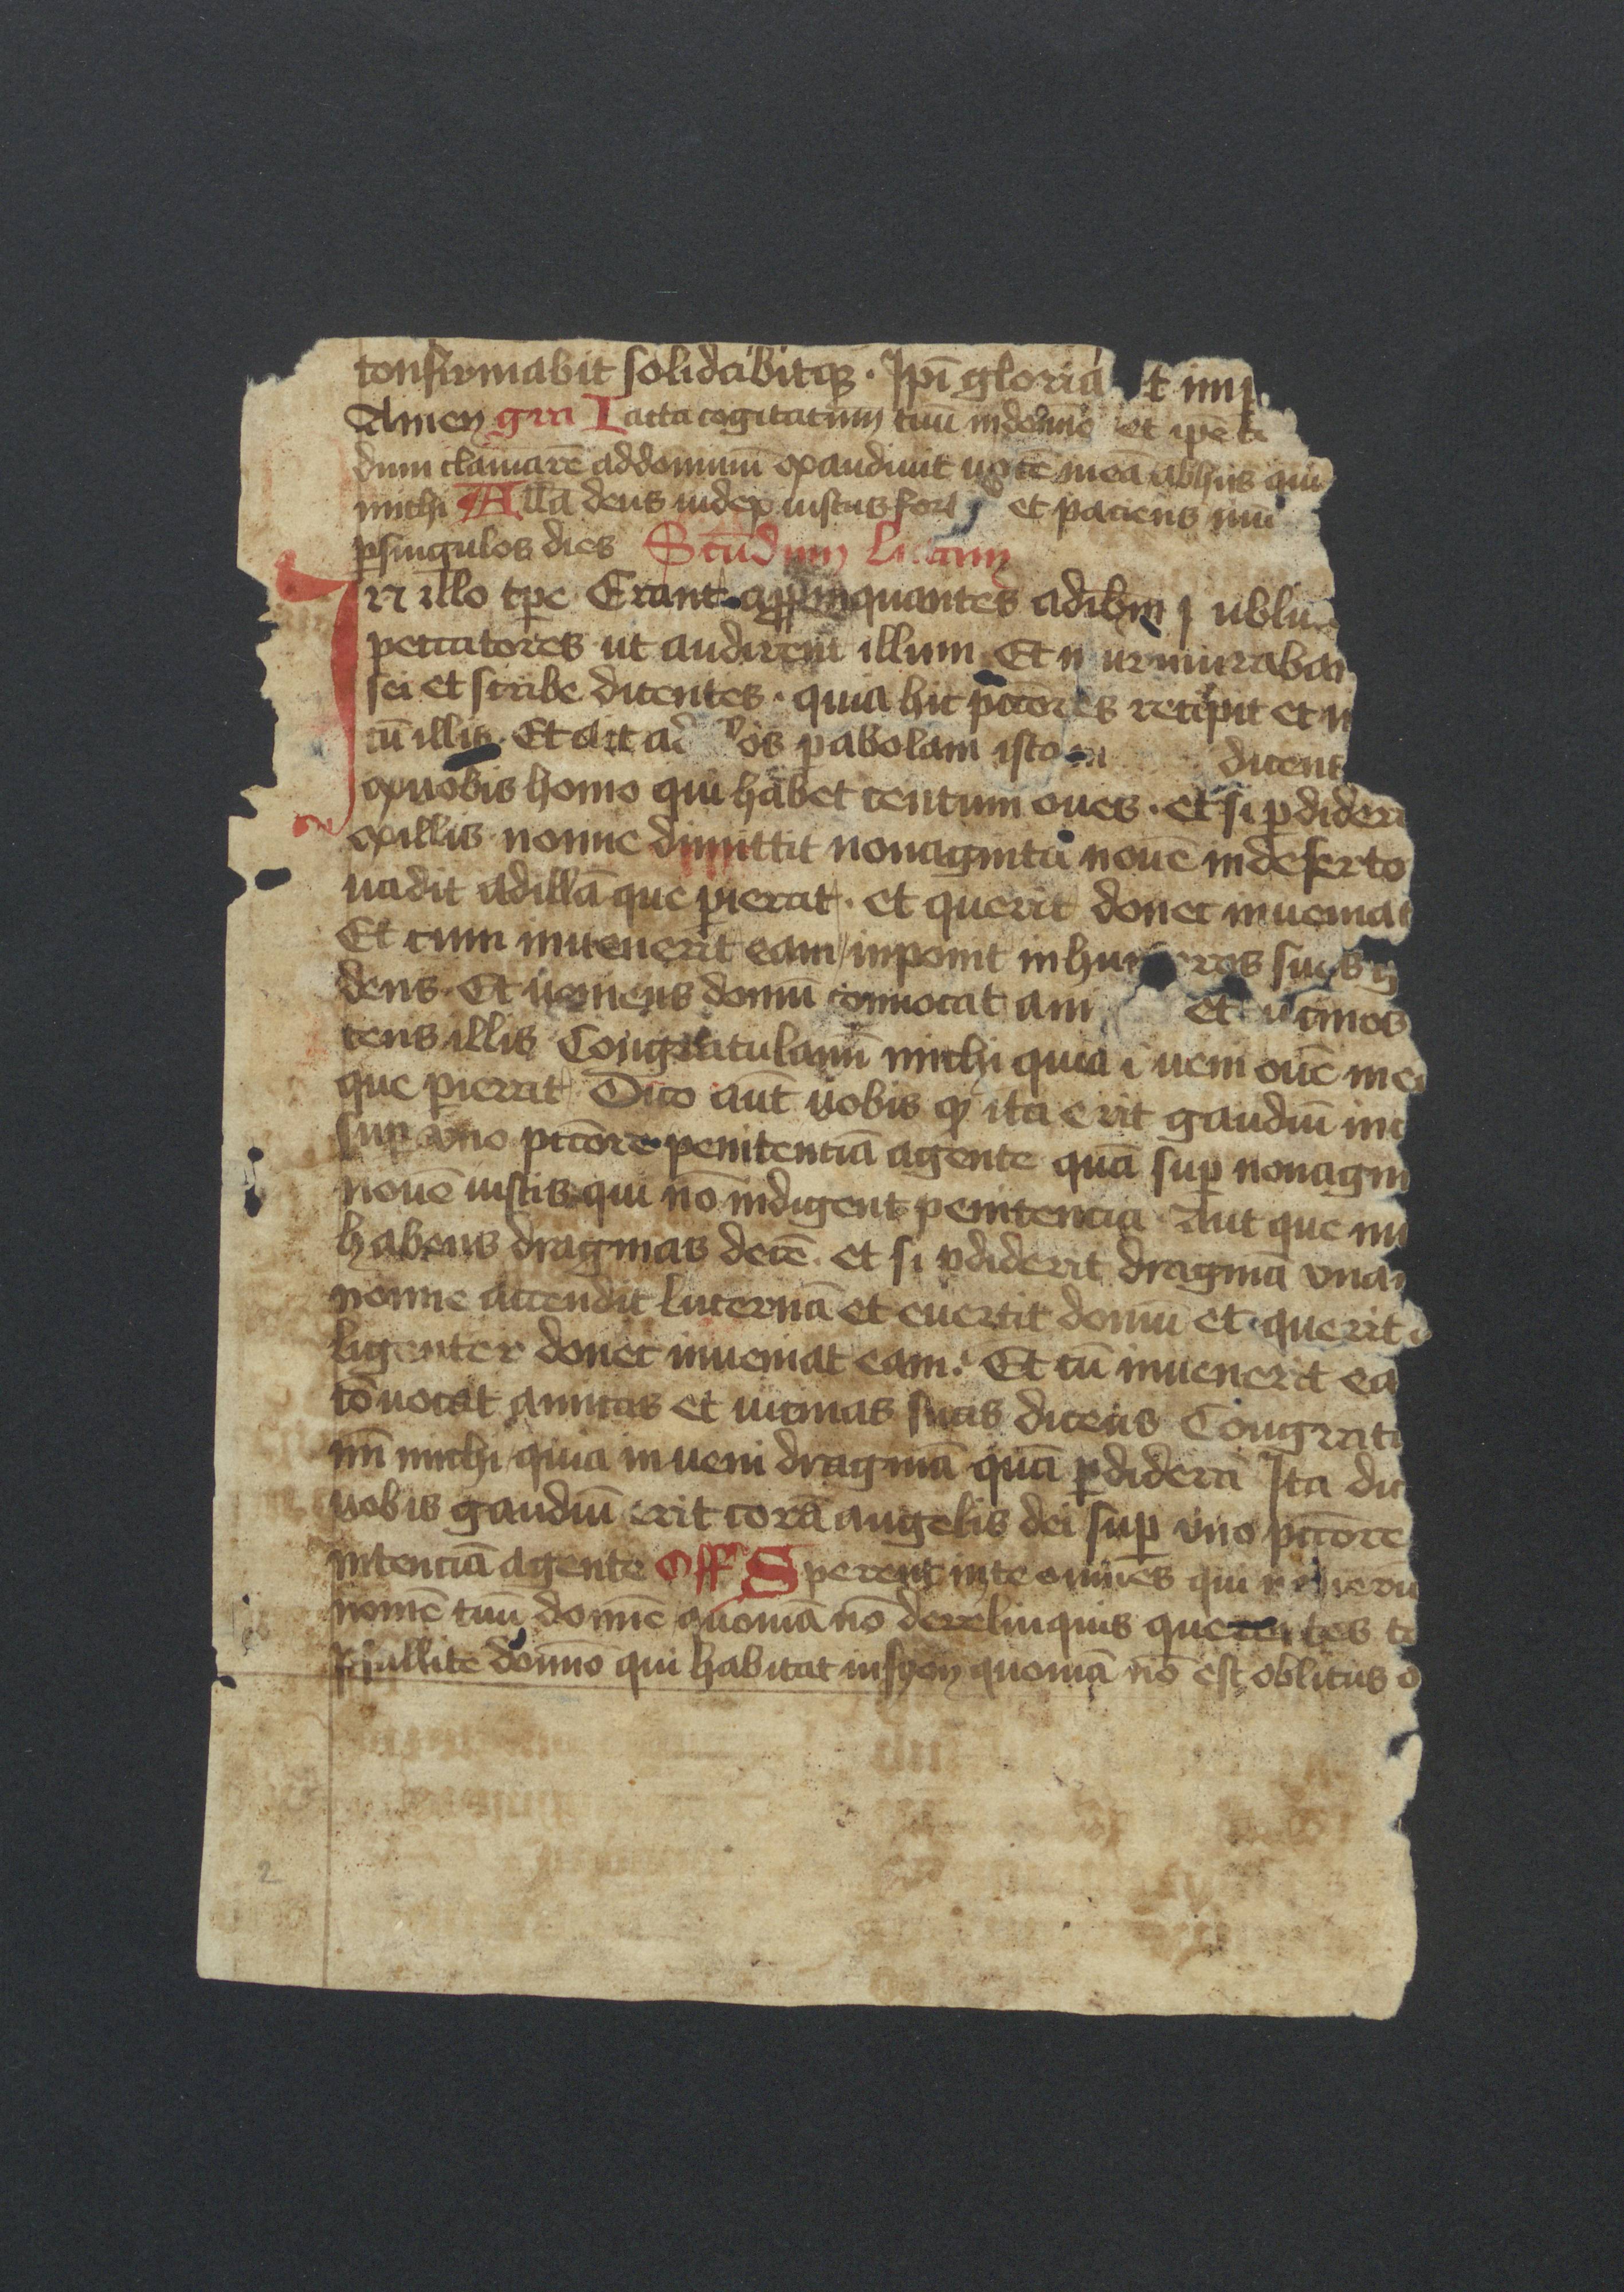 confirmabit solidabitqꝫ · Ipī gloria et imp
Amen gra Iacta cogitatum tuū in domīo et ipē te
dum clamarē ad dominū exaudiuit uocē meā ab hiis qui
michi Allā deus iudex iustus fort et paciens nū
ꝑ singulos dies Scūdum Lucam
In illo tpe Erant appropinquantes ad ihm publi
peccatores ut audirent illum Et murmuraban
sei et scribe dicentes · quia hic pccores recipit et m
cū illis · Et ait ad os pabolam istam dicent
ex uobis homo qui habet centum oues · et si ꝑdider
ex illis nonne dimittit nonaginta nouē in deserto
uadit ad illā que pierat · et querit donec inueniat
Et cum inuenerit eam inponit in humeros suos g
dens · Et ueniens domū conuocat ami et uicinos
cens illis Congratulamī michi quia inueni ouē me
que pierat Dico aūt uobis ꝙ ita erit gaudiū in c
suꝑ vno pccore penitenciā agente quā suꝑ nonagin
nouē iustis qui nō indigent penitencia · Aut que mu
habens dragmas decē · et si ꝑdiderit dragmā vnam
nonne accendit lucernā et euertit domū et querit
ligenter donec inueniat eam · Et cū inuenerit ea
cōuocat amicas et uicinas suas dicens Congratu
mī michi quia inueni dragmā quā ꝑdidera Ita dic
uobis gaudiū erit corā angelis dei suꝑ vno pccore
nitenciā agente Off Sperent in te omnes qui nouerū
nomē tuū domīe quoniā nō derelinquis querentes te
psallite domīo qui habitat in syon quoniā nō est oblitus o
2